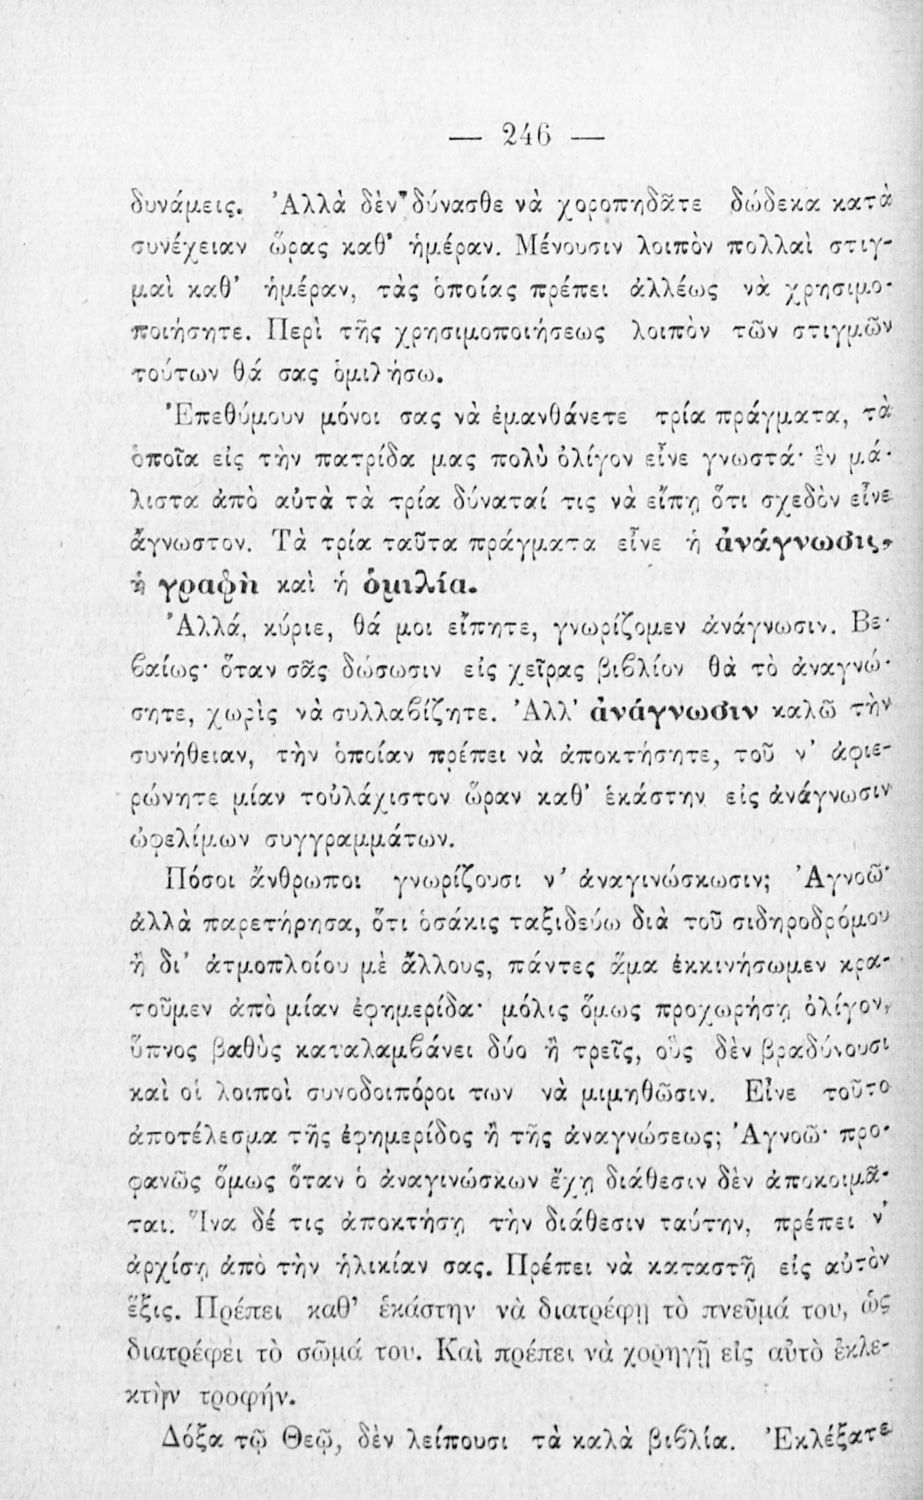 — 246 —
δυνάμεις. Ἀλλὰ δὲν δύνασθε νὰ χοροπηδᾶτε δώδεκα κατὰ
συνέχειαν ὥρας καθ' ἡμέραν. Μένουσιν λοιπὸν πολλαὶ στιγ-
μαὶ καθ' ἡμέραν, τὰς ὁποίας πρέπει ἀλλέως νὰ χρησιμο-
ποιήσητε. Περὶ τῆς χρησιμοποιήσεως λοιπὸν τῶν στιγμῶν
τούτων θά σας ὁμιλήσω.
Ἐπεθύμουν μόνοι σας νὰ ἐμανθάνετε τρία πράγματα, τὰ
ὁποῖα εἰς τὴν πατρίδα μας πολὺ ὀλίγον εἶνε γνωστά· ἓν μά-
λιστα ἀπὸ αὐτὰ τὰ τρία δύναταί τις νὰ εἴπῃ ὅτι σχεδὸν εἶνε
ἄγνωστον. Τὰ τρία ταῦτα πράγματα εἶνε ἡ ἀνάγνωσις,
ἡ γραφὴ καὶ ἡ ὁμιλία.
Ἀλλά, κύριε, θά μοι εἴπητε, γνωρίζομεν ἀνάγνωσιν. Βε-
βαίως· ὅταν σᾶς δώσωσιν εἰς χεῖρας βιβλίον θὰ τὸ ἀναγνώ-
σητε, χωρὶς νὰ συλλαβίζητε. Ἀλλ' ἀνάγνωσιν καλῶ τὴν
συνήθειαν, τὴν ὁποίαν πρέπει νὰ ἀποκτήσητε, τοῦ ν' ἀφιε-
ρώνητε μίαν τοὐλάχιστον ὥραν καθ' ἑκάστην εἰς ἀνάγνωσιν
ὠφελίμων συγγραμμάτων.
Πόσοι ἄνθρωποι γνωρίζουσι ν' ἀναγινώσκωσιν; Ἀγνοῶ·
ἀλλὰ παρετήρησα, ὅτι ὁσάκις ταξιδεύω διὰ τοῦ σιδηροδρόμου
ἢ δι' ἀτμοπλοίου μὲ ἄλλους, πάντες ἅμα ἐκκινήσωμεν κρα-
τοῦμεν ἀπὸ μίαν ἐφημερίδα· μόλις ὅμως προχωρήσῃ ὀλίγον,
ὕπνος βαθὺς καταλαμβάνει δύο ἢ τρεῖς, οὓς δὲν βραδύνουσι
καὶ οἱ λοιποὶ συνοδοιπόροι των νὰ μιμηθῶσιν. Εἶνε τοῦτο
ἀποτέλεσμα τῆς ἐφημερίδος ἢ τῆς ἀναγνώσεως; Ἀγνοῶ· προ-
φανῶς ὅμως ὅταν ὁ ἀναγινώσκων ἔχῃ διάθεσιν δὲν ἀποκοιμᾶ-
ται. Ἵνα δέ τις ἀποκτήσῃ τὴν διάθεσιν ταύτην, πρέπει ν'
ἀρχίσῃ ἀπὸ τὴν ἡλικίαν σας. Πρέπει νὰ καταστῇ εἰς αὐτὸν
ἕξις. Πρέπει καθ' ἑκάστην νὰ διατρέφῃ τὸ πνεῦμά του, ὡς
διατρέφει τὸ σῶμά του. Καὶ πρέπει νὰ χορηγῇ εἰς αὐτὸ ἐκλε-
κτὴν τροφήν.
Δόξα τῷ Θεῷ, δὲν λείπουσι τὰ καλὰ βιβλία. Ἐκλέξατε